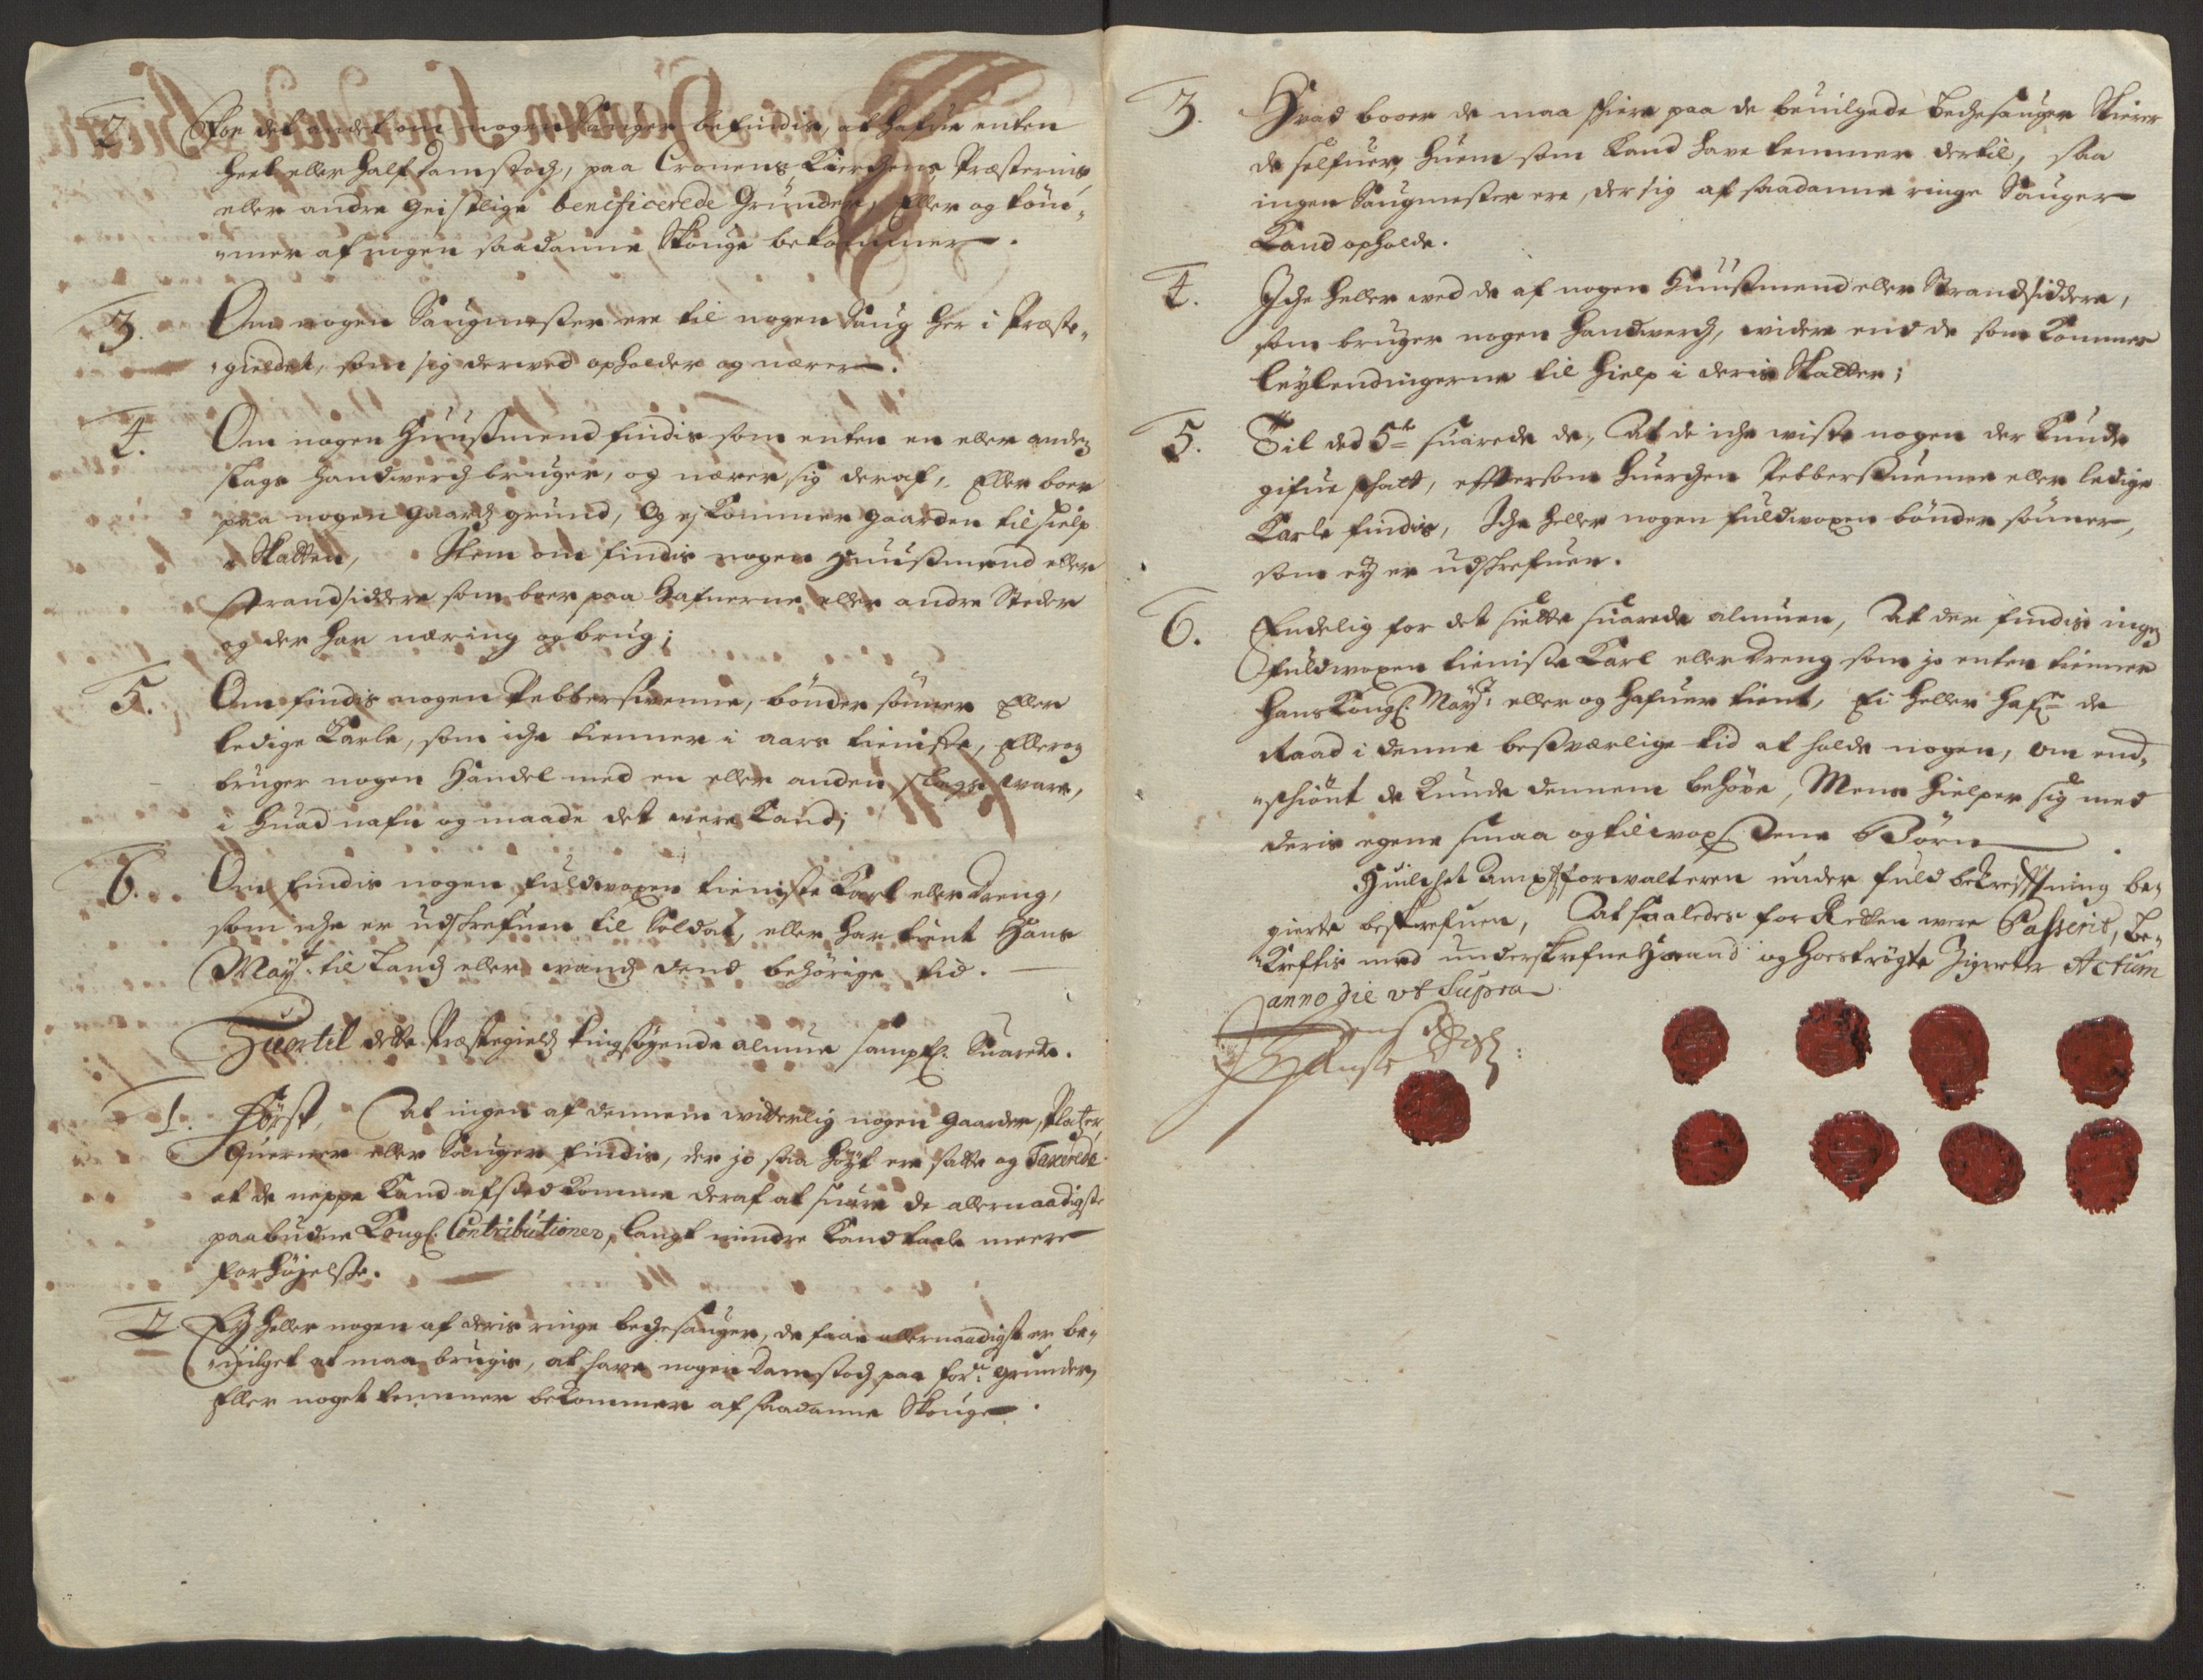 2. For det andet om nogen Sauger befindis, at hafue enten
heel eller half damstoch, paa Cronens, Kierchens, Præsternis,
eller andre Geistlige beneficerede Grunder, Eller og töm-
mer af nogen saadanne Skouge bekommer.
3. Om nogen Saugmester ere til nogen Saug her i Præste-
gieldet, som sig derved opholder og nærer.
4. Om nogen Huusmend findis som enten en eller anden
slags handverch bruger, og nærer sig deraf, Eller boer
paa nogen gaards grund, og ej kommer gaarden til hielp
i Skatten, Item om findis nogen Huusmend eller
Strandsiddere som boer paa Hafnerne eller andre Steder
og der har næring og brug;
5. Om findis nogen Pebbersvenne, bönder sönner Eller
ledige Karle, som iche tienner i aars tieniste, Eller og
bruger nogen Handel med en eller anden slags vare,
i huad nafn og maade det være kand;
6. Om findis nogen fuldvoxen tieniste Karl eller dreng,
som iche er udskrefuen til Soldat, eller har tient Hans
Mayt. til Land eller vand dend behörige tid.
Huortil dette Præstegields tingsögende almue samptl. Suarede.
1. Först, At ingen af dennem vitterlig nogen gaarder, Platzer,
Querner eller Sauger findis, der jo saa höyt ere satte og Taxerede
at de neppe kand afsted komme deraf at suare de allernaadigste
paabudne Kongl. Contributioner, langt mindre kand taale meere
forhöjelse.
2. Ey heller nogen af deris ringe bechesauger, de faae allernaadigst er be-
vilget at maa brugis, at have nogen damstoch paa forne grunder,
Eller noget temmer bekommer af saadanne Skouge.
3. Hvad boer de maa skiere paa de bevilgede bechesauger Skierer
de selfuer, huem som kand have temmer dertil, saa
ingen Saugmester ere, der sig af saadanne ringe Sauger
kand opholde.
4. Iche heller ved de af nogen Huusmend eller Strandsiddere,
som bruger nogen handverch, videre end de som kommer
leylendingerne til hielp i deris Skatter;
5. Til det 5te suarede de, At de iche viste nogen der kunde
gifue skatt, eftersom huerchen Pebbersuenne eller ledige
Karle findis, Iche heller nogen fuldvoxen bönder sönner,
som ey er udskrefuen.
6. Endelig for det siette suarede almuen, At der findis ingen
fuldvoxen tieniste Karl eller dreng som jo enten tienner
Hans Kongl. Mayt. eller og hafuer tient, Ei heller hafr. de
Raad i denne besværlige tid at holde nogen, om end-
skiönt de kunde dennem behöve, Mens hielper sig med
deris egene smaa og tilvoxsene Börn
Huilchet Amptsforvalteren under fuld bekrefftning be-
gierte beskrefuen, At saaledes for Retten were Passerit, be-
kreftis med underskrefne haand og hoeströgte Zigneter Actum
anno die ut Supra